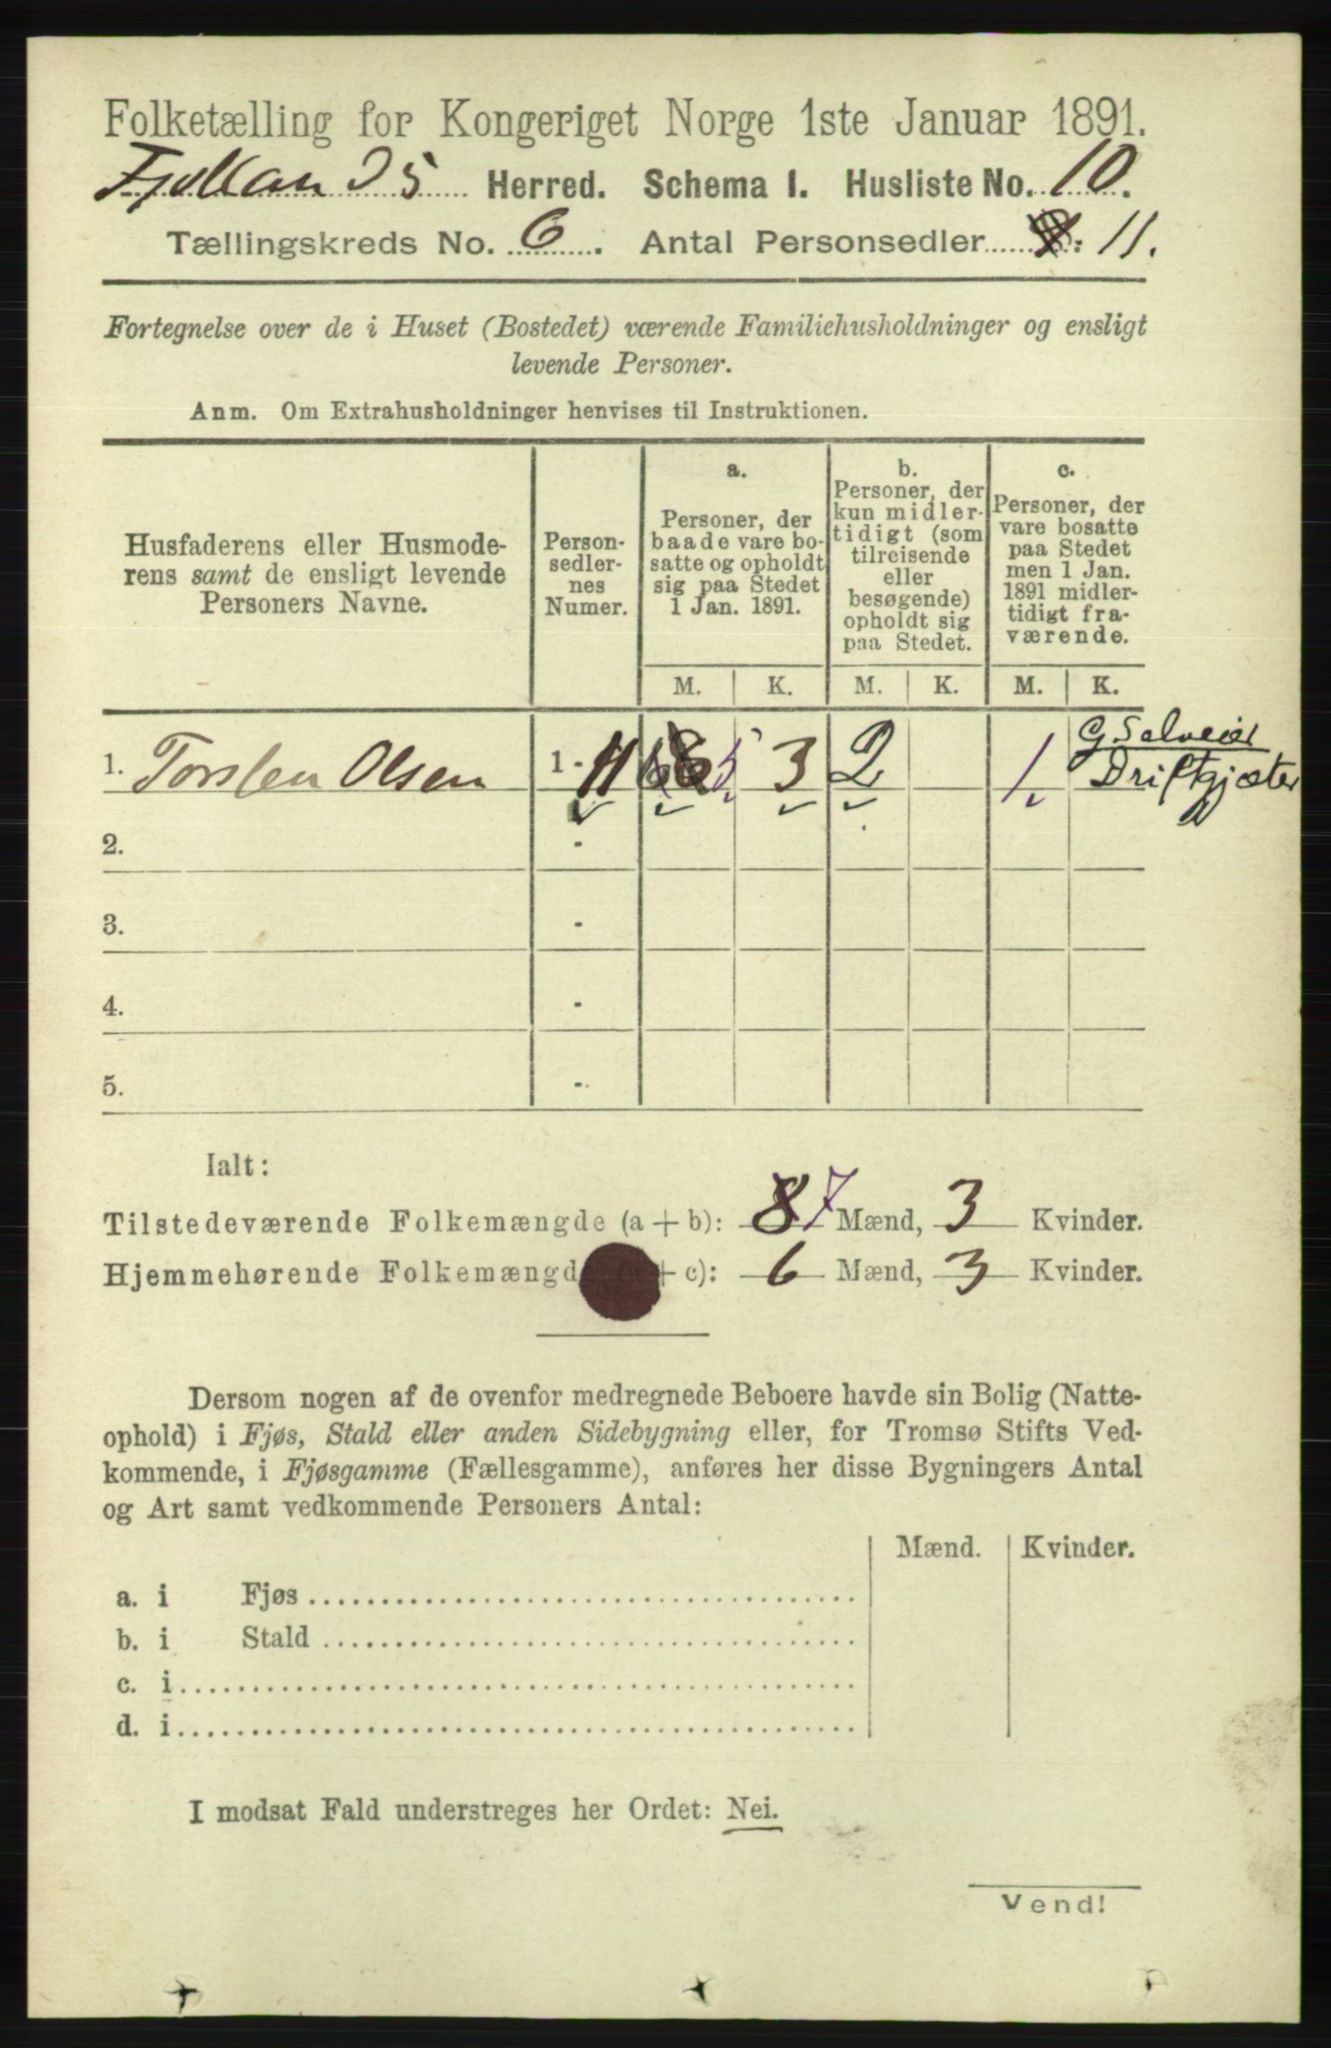 Folketælling for Kongeriget Norge 1ste Januar 1891.
Fjotlands Herred. Schema I. Husliste No. 10.
Tællingskreds No. 6. Antal Personsedler 11.
Fortegnelse over de i Huset (Bostedet) værende Familiehusholdninger og ensligt
levende Personer.
Anm. Om Extrahusholdninger henvises til Instruktionen.
Husfaderens eller Husmode-
rens samt de ensligt levende
Personers Navne.
Person-
sedler-
nes
Numer.
a.
Personer, der
baade vare bo-
satte og opholdt
sig paa Stedet
1 Jan. 1891.
b.
Personer, der
kun midler-
tidigt (som
tilreisende
eller
besøgende)
opholdt sig
paa Stedet.
c.
Personer, der
vare bosatte
paa Stedet
men 1 Jan.
1891 midler-
tidigt fra-
værende.
M. K. M. K. M. K.
G Selveier
1. Torsten Olsen 1 - 11 5 3 2 1. Driftgjæter
2. -
3. -
4. -
5. -
Ialt:
Tilstedeværende Folkemængde (a + b): 8 7 Mænd, 3 Kvinder.
Hjemmehørende Folkemængde (a + c): 6 Mænd, 3 Kvinder.
Dersom nogen af de ovenfor medregnede Beboere havde sin Bolig (Natte-
ophold) i Fjøs, Stald eller anden Sidebygning eller, for Tromsø Stifts Ved-
kommende, i Fjøsgamme (Fællesgamme), anføres her disse Bygningers Antal
og Art samt vedkommende Personers Antal:
Mænd. Kvinder.
a. i Fjøs
b. i Stald
c. i
d. i
I modsat Fald understreges her Ordet: Nei.
Vend!